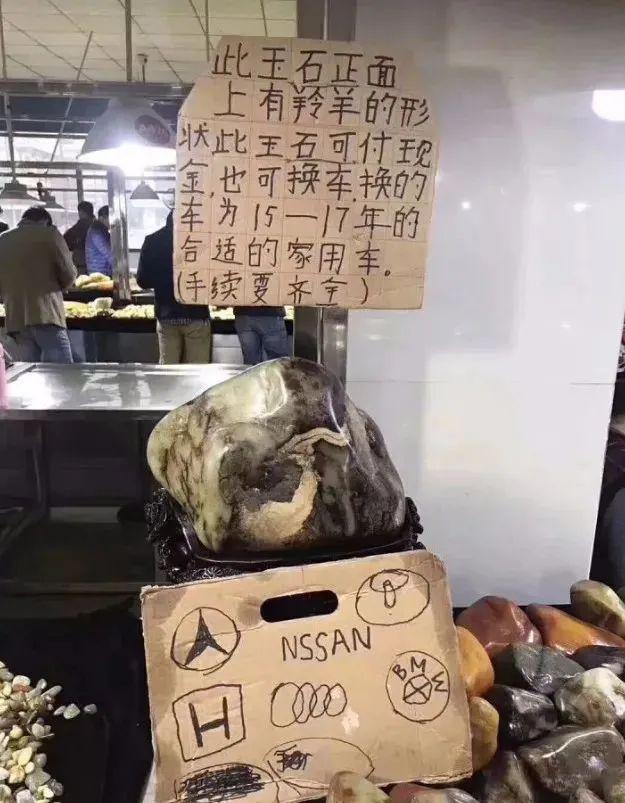 此玉石正面
上有羚羊的形
状此玉石可付现
金,也可换车,换的
车为15—17年的
合适的家用车。
(手续要齐全)
NSSAN
H
BMW